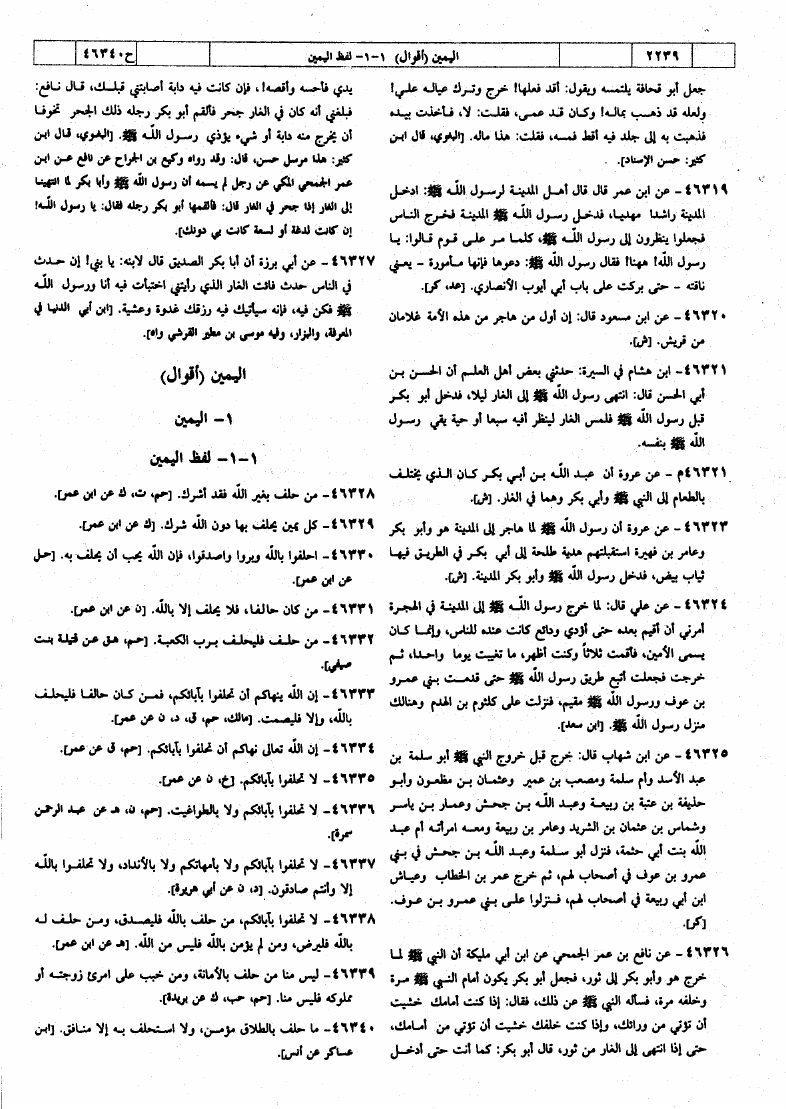 ٢٢٣٩
اليمين (أقوال) ١-١- لفظ اليمين
ح٤٦٣٤٠
جعل أبو قحافة يلتمسه ويقول: أقد فعلها! خرج وترك عياله علي!
ولعله قد ذهب بماله! وكان قد عمى، فقلت: لا، فأخذت بيده
فذهبت به إلى جلد فيه أقط فمسه، فقلت: هذا ماله. [البغوي، قال ابن
كثير: حسن الإسناد].
٤٦٣١٩- عن ابن عمر قال قال أهل المدينة لرسول الله ﷺ: ادخل
المدينة راشدا مهديا، فدخل رسول الله ﷺ المدينة فخرج الناس
فجعلوا ينظرون إلى رسول الله ﷺ، كلما مر على قوم قالوا: يا
رسول الله! ههنا! فقال رسول الله ﷺ: دعوها فإنها مأمورة - يعني
ناقته - حتى بركت على باب أبي أيوب الأنصاري. [عد، كر].
٤٦٣٢٠- عن ابن مسعود قال: إن أول من هاجر من هذه الأمة غلامان
من قريش. [ش].
٤٦٣٢١- ابن هشام في السيرة: حدثني بعض أهل العلم أن الحسن بن
أبي الحسن قال: انتهى رسول الله ﷺ إلى الغار ليلا، فدخل أبو بكر
قبل رسول الله ﷺ فلمس الغار لينظر أفيه سبعا أو حية يقي رسول
الله ﷺ بنفسه.
٤٦٣٢١م- عن عروة أن عبد الله بن أبي بكر كان الذي يختلف
بالطعام إلى النبي ﷺ وأبي بكر وهما في الغار. [ش].
٤٦٣٢٣- عن عروة أن رسول الله ﷺ لما هاجر إلى المدينة هو وأبو بكر
وعامر بن فهيرة استقبلتهم هدية طلحة إلى أبي بكر في الطريق فيها
ثياب بيض، فدخل رسول الله ﷺ وأبو بكر المدينة. [ش].
٤٦٣٢٤- عن علي قال: لما خرج رسول الله ﷺ إلى المدينة في الهجرة
أمرني أن أقيم بعده حتى أؤدي ودائع كانت عنده للناس، وإنما كان
يسمى الأمين، فأقمت ثلاثاً وكنت أظهر، ما تغيبت يوما واحدا، ثم
خرجت فجعلت أتبع طريق رسول الله ﷺ حتى قدمت بني عمرو
بن عوف ورسول الله ﷺ مقيم، فنزلت على كلثوم بن الهدم وهنالك
منزل رسول الله ﷺ. [ابن سعد].
٤٦٣٢٥- عن ابن شهاب قال: خرج قبل خروج النبي ﷺ أبو سلمة بن
عبد الأسد وأم سلمة ومصعب بن عمير وعثمان بن مظعون وأبو
حذيفة بن عتبة بن ربيعة وعبد الله بن جحش وعمار بن ياسر
وشماس بن عثمان بن الشريد وعامر بن ربيعة ومعه امرأته أم عبد
الله بنت أبي حثمة، فنزل أبو سلمة وعبد الله بن جحش في بني
عمرو بن عوف في أصحاب لهم، ثم خرج عمر بن الخطاب وعياش
ابن أبي ربيعة في أصحاب لهم، فنزلوا على بني عمرو بن عوف.
[كر].
٤٦٣٢٦- عن نافع بن عمر الجمحي عن ابن أبي مليكة أن النبي ﷺ لما
خرج هو وأبو بكر إلى ثور، فجعل أبو بكر يكون أمام النبي ﷺ مرة
وخلفه مرة، فسأله النبي ﷺ عن ذلك، فقال: إذا كنت أمامك خشيت
أن تؤتي من ورائك، وإذا كنت خلفك خشيت أن تؤتي من أمامك،
حتى إذا انتهى إلى الغار من ثور، قال أبو بكر: كما أنت حتى أدخل
يدي فأحسه وأقصه!، فإن كانت فيه دابة أصابتني قبلك، قال نافع:
فبلغني أنه كان في الغار جحر فألقم أبو بكر رجله ذلك الجحر تخوفا
أن يخرج منه دابة أو شيء يؤذي رسول الله ﷺ. [البغوي، قال ابن
كثير: هذا مرسل حسن، قال: وقد رواه وكيع بن الجراح عن نافع عن ابن
عمر الجمحي المكي عن رجل لم يسمه أن رسول الله ﷺ وأبا بكر لما انتهينا
إلى الغار إذا جحر في الغار قال: فألقمها أبو بكر رجله فقال: يا رسول الله!
إن كانت لدغة أو لسعة كانت بي دونك].
٤٦٣٢٧- عن أبي برزة أن أبا بكر الصديق قال لابنه: يا بني! إن حدث
في الناس حدث فائت الغار الذي رأيتني اختبأت فيه أنا ورسول الله
ﷺ فكن فيه، فإنه سيأتيك فيه رزقك غدوة وعشية. [ابن أبي الدنيا في
المعرفة، والبزار، وفيه موسى بن مطير القرشي واه].
اليمين (أقوال)
١- اليمين
١-١- لفظ اليمين
٤٦٣٢٨- من حلف بغير الله فقد أشرك. [حم، ت، ك عن ابن عمر].
٤٦٣٢٩- كل يمين يحلف بها دون الله شرك. [ك عن ابن عمر].
٤٦٣٣٠- احلفوا بالله وبروا واصدقوا، فإن الله يحب أن يحلف به. [حل
عن ابن عمر].
٤٦٣٣١- من كان حالفا، فلا يحلف إلا بالله. [ن عن ابن عمر].
٤٦٣٣٢- من حلف فليحلف برب الكعبة. [حم، هق عن قيلة بنت
صيفي].
٤٦٣٣٣- إن الله ينهاكم أن تحلفوا بآبائكم، فمن كان حالفا فليحلف
بالله، وإلا فليصمت. [مالك، حم، ق، د، ن عن عمر].
٤٦٣٣٤- إن الله تعالى نهاكم أن تحلفوا بآبائكم. [حم، ق عن عمر].
٤٦٣٣٥- لا تحلفوا بآبائكم. [خ، ن عن عمر].
٤٦٣٣٦- لا تحلفوا بآبائكم ولا بالطواغيت. [حم، ن، هـ عن عبد الرحمن
سمرة].
٤٦٣٣٧- لا تحلفوا بآبائكم ولا بأمهاتكم ولا بالأنداد، ولا تحلفوا بالله
إلا وأنتم صادقون. [د، ن عن أبي هريرة].
٤٦٣٣٨- لا تحلفوا بآبائكم، من حلف بالله فليصدق، ومن حلف له
بالله فليرض، ومن لم يؤمن بالله فليس من الله. [هـ عن ابن عمر].
٤٦٣٣٩- ليس منا من حلف بالأمانة، ومن خبب على امرئ زوجته أو
مملوكه فليس منا. [حم، حب، ك عن بريدة].
٤٦٣٤٠- ما حلف بالطلاق مؤمن، ولا استحلف به إلا منافق. [ابن
عساكر عن أنس].